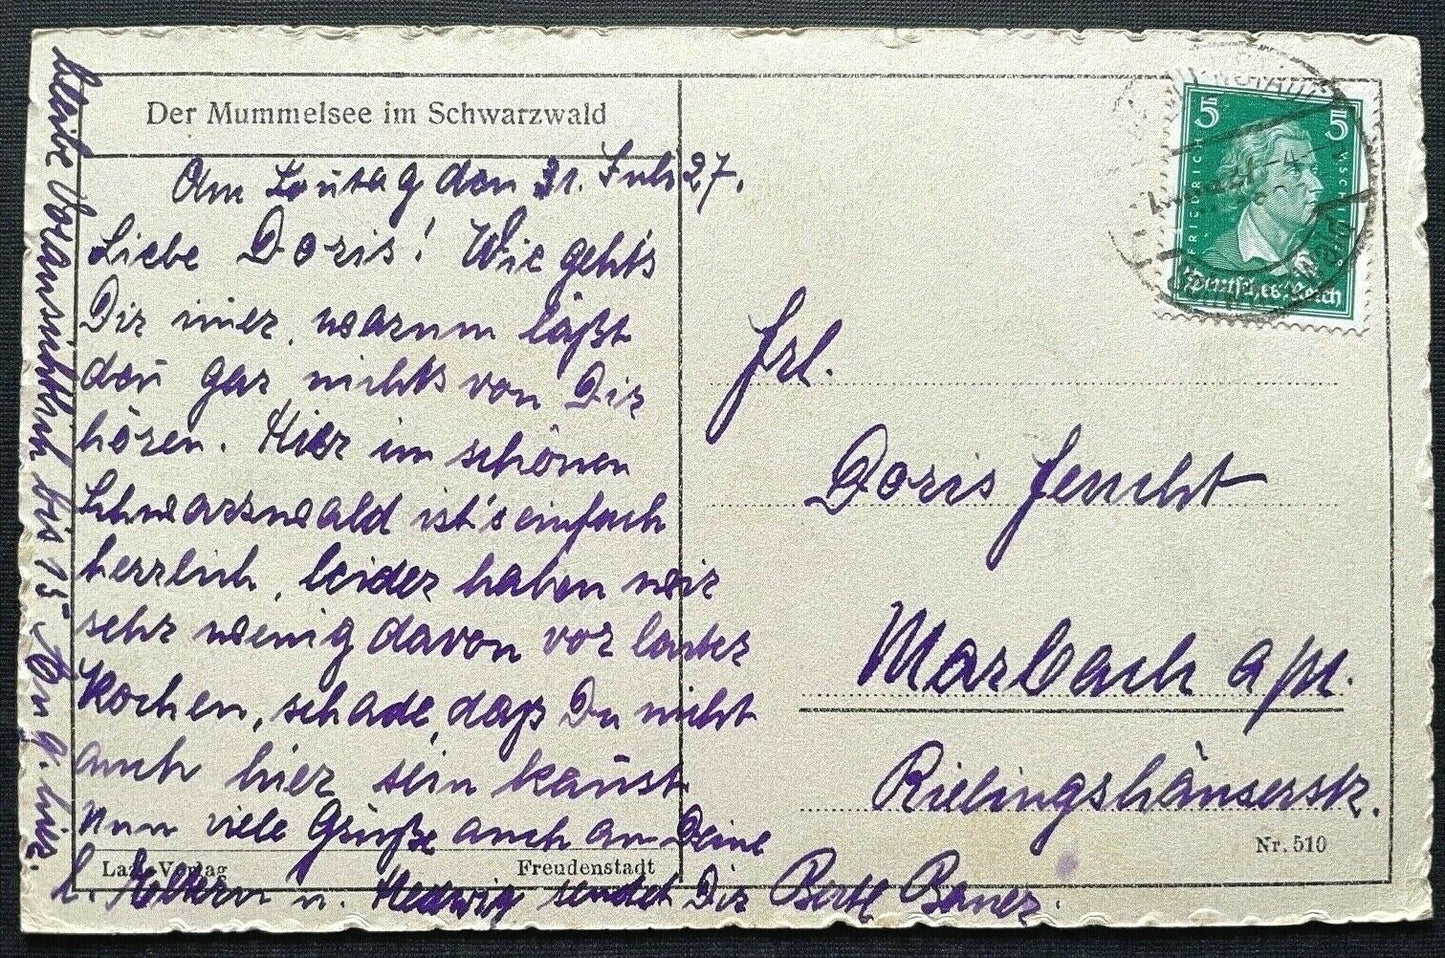 Der Mummelsee im Schwarzwald
Am Soñtag den 31. Juli 27.
Liebe Doris! Wie geht's
Dir im̄er, warum läßt
deñ gar nichts von Dir
hören. Hier im schönen
Schwarzwald ist's einfach
herrlich, leider haben wir
sehr wenig davon vor lauter
Kochen, schade, daß Du nicht
auch hier sein kañst
Nun viele Grüße auch an Deine
l. Eltern u. Hedwig sendet Dir Bertl Bauer.
bleibe Voraussichtlich bis 15. Aug. hier.
Verlag
Freudenstadt
5 5
FRIEDRICH
Deutsches Reich
Frl.
Doris Feucht
Marbach a/N.
Rielingshäuserstr.
Nr. 510